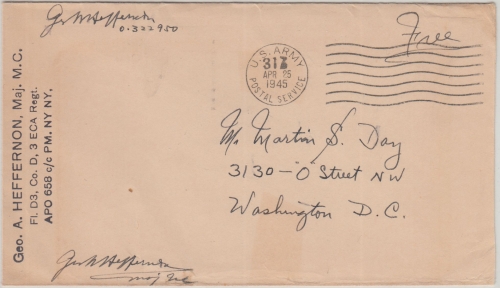 Geo A Heffernon
0-322950
Free
U.S. ARMY
317
APR 25
1945
POSTAL SERVICE
Geo. A. HEFFERNON, Maj. M.C.
Fl. D3, Co. D, 3 ECA Regt.
APO 658 c/c PM. NY NY.
Mr. Martin S. Day
3130-O Street NW
Washington D.C.
Geo A Heffernon
Maj MC